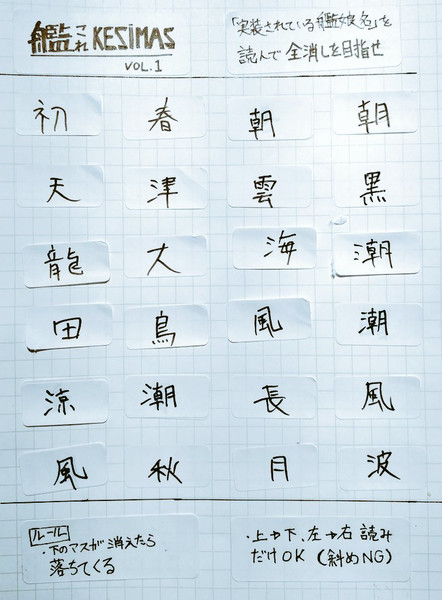 艦これ KESIMAS
VOL.1
「実装されている艦娘名」を
読んで全消しを目指せ
初 春 朝 朝
天 津 雲 黒
龍 大 海 潮
田 鳥 風 潮
涼 潮 長 風
風 秋 月 波
ルール
・下のマスが消えたら
落ちてくる
・上→下、左→右 読み
だけOK（斜めNG）